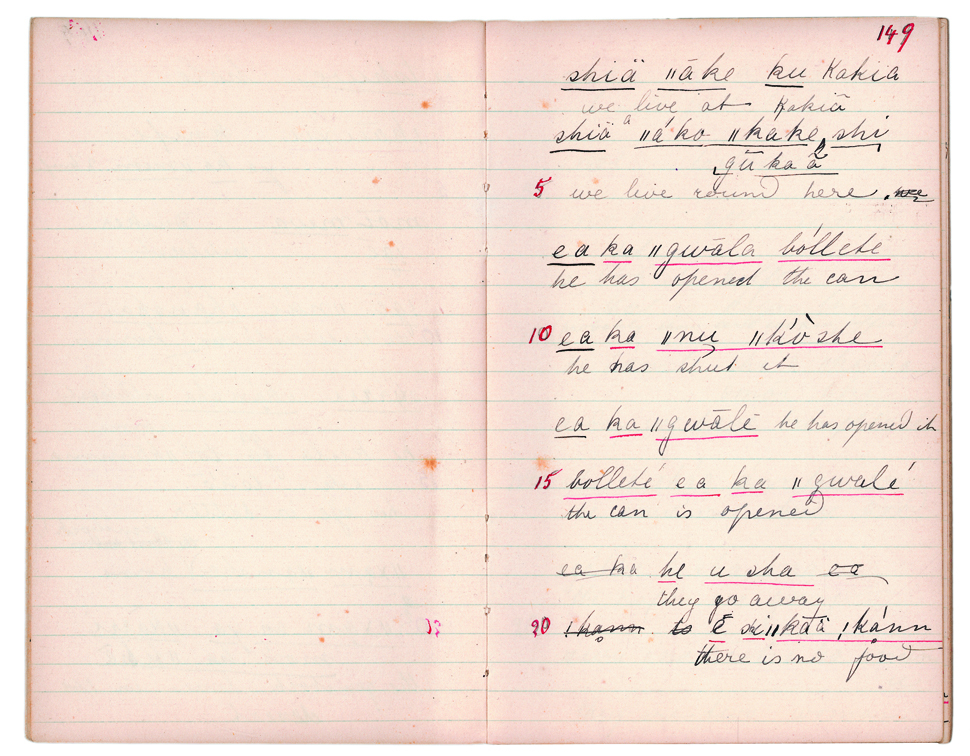 149
shiä ǁāke ku Kakia
we live at Kakiā
shiä ǁáko ǁkake shi
gūkaã
5 we live round here
ea ka ǁgwāla bólleté
he has opened the can
10 ea ka ǁnu ǁk'òshe
he has shut it
ea ka ǁgwālē he has opened it
15 bolleté ea ka ǁgwalé
the can is opened
ea ka he u sha ea
they go away
20 ǃkann ts É siǁkāä ǃkánn
there is no food